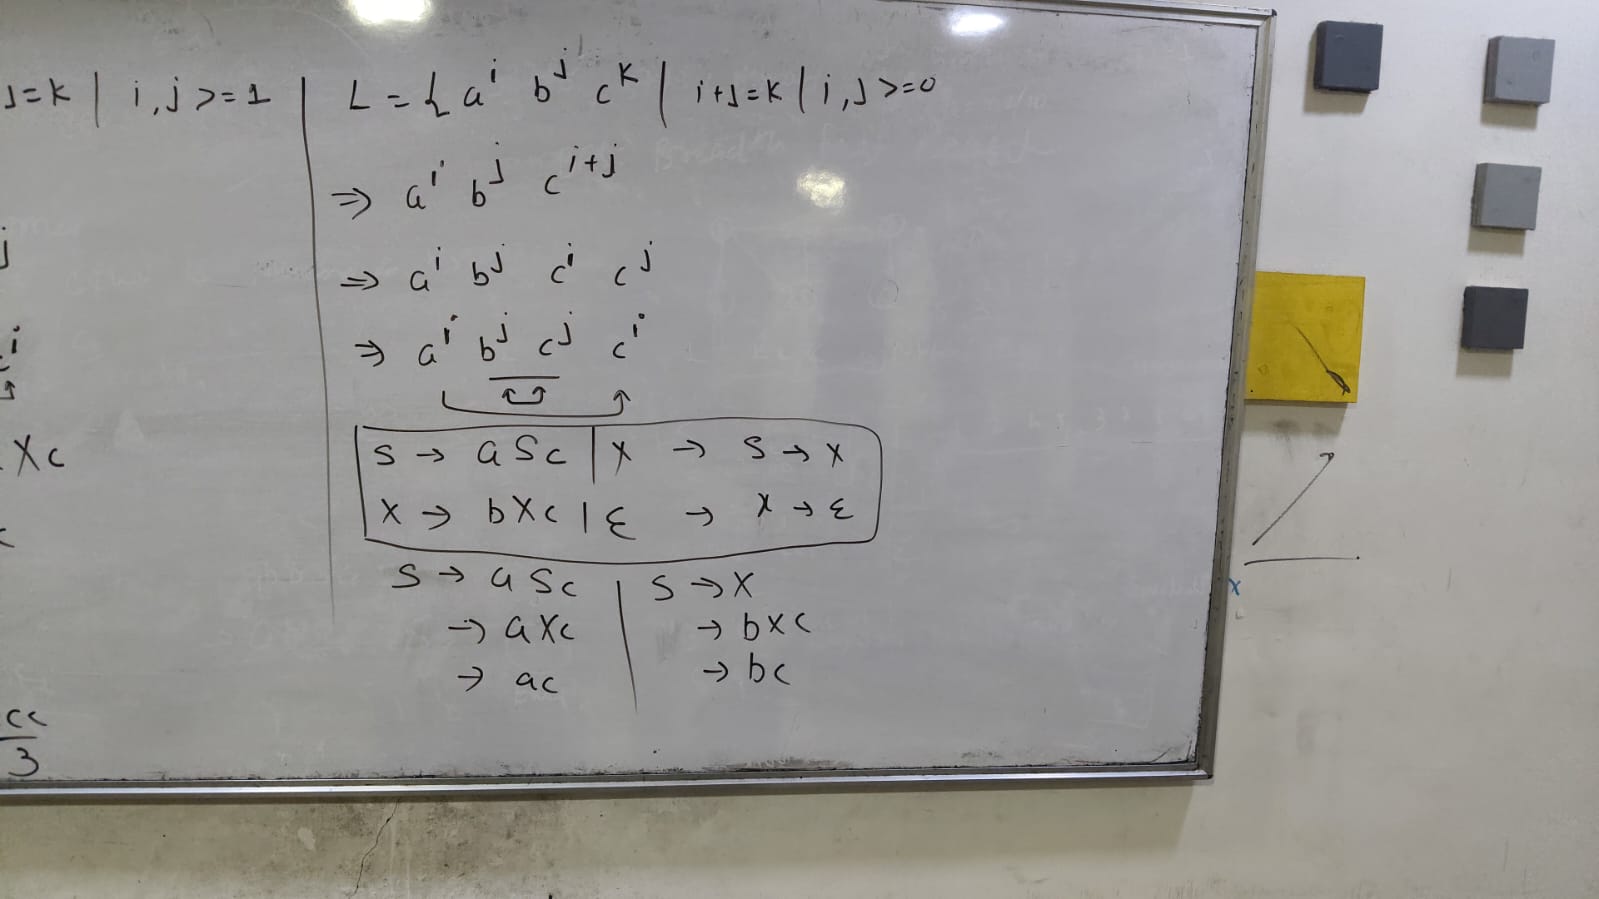 J=K | i,j >=1
j
i
Xc
c
cc
3
L={ a^i b^j c^K | i+J=K | i,J >=0
⇒ a^i b^j c^i+j
⇒ a^i b^j c^i c^j
⇒ a^i b^j c^j c^i
S → aSc | X → S → X
X → bXc | ε → X → ε
S → aSc
→ aXc
→ ac
S → X
→ bXc
→ bc
x